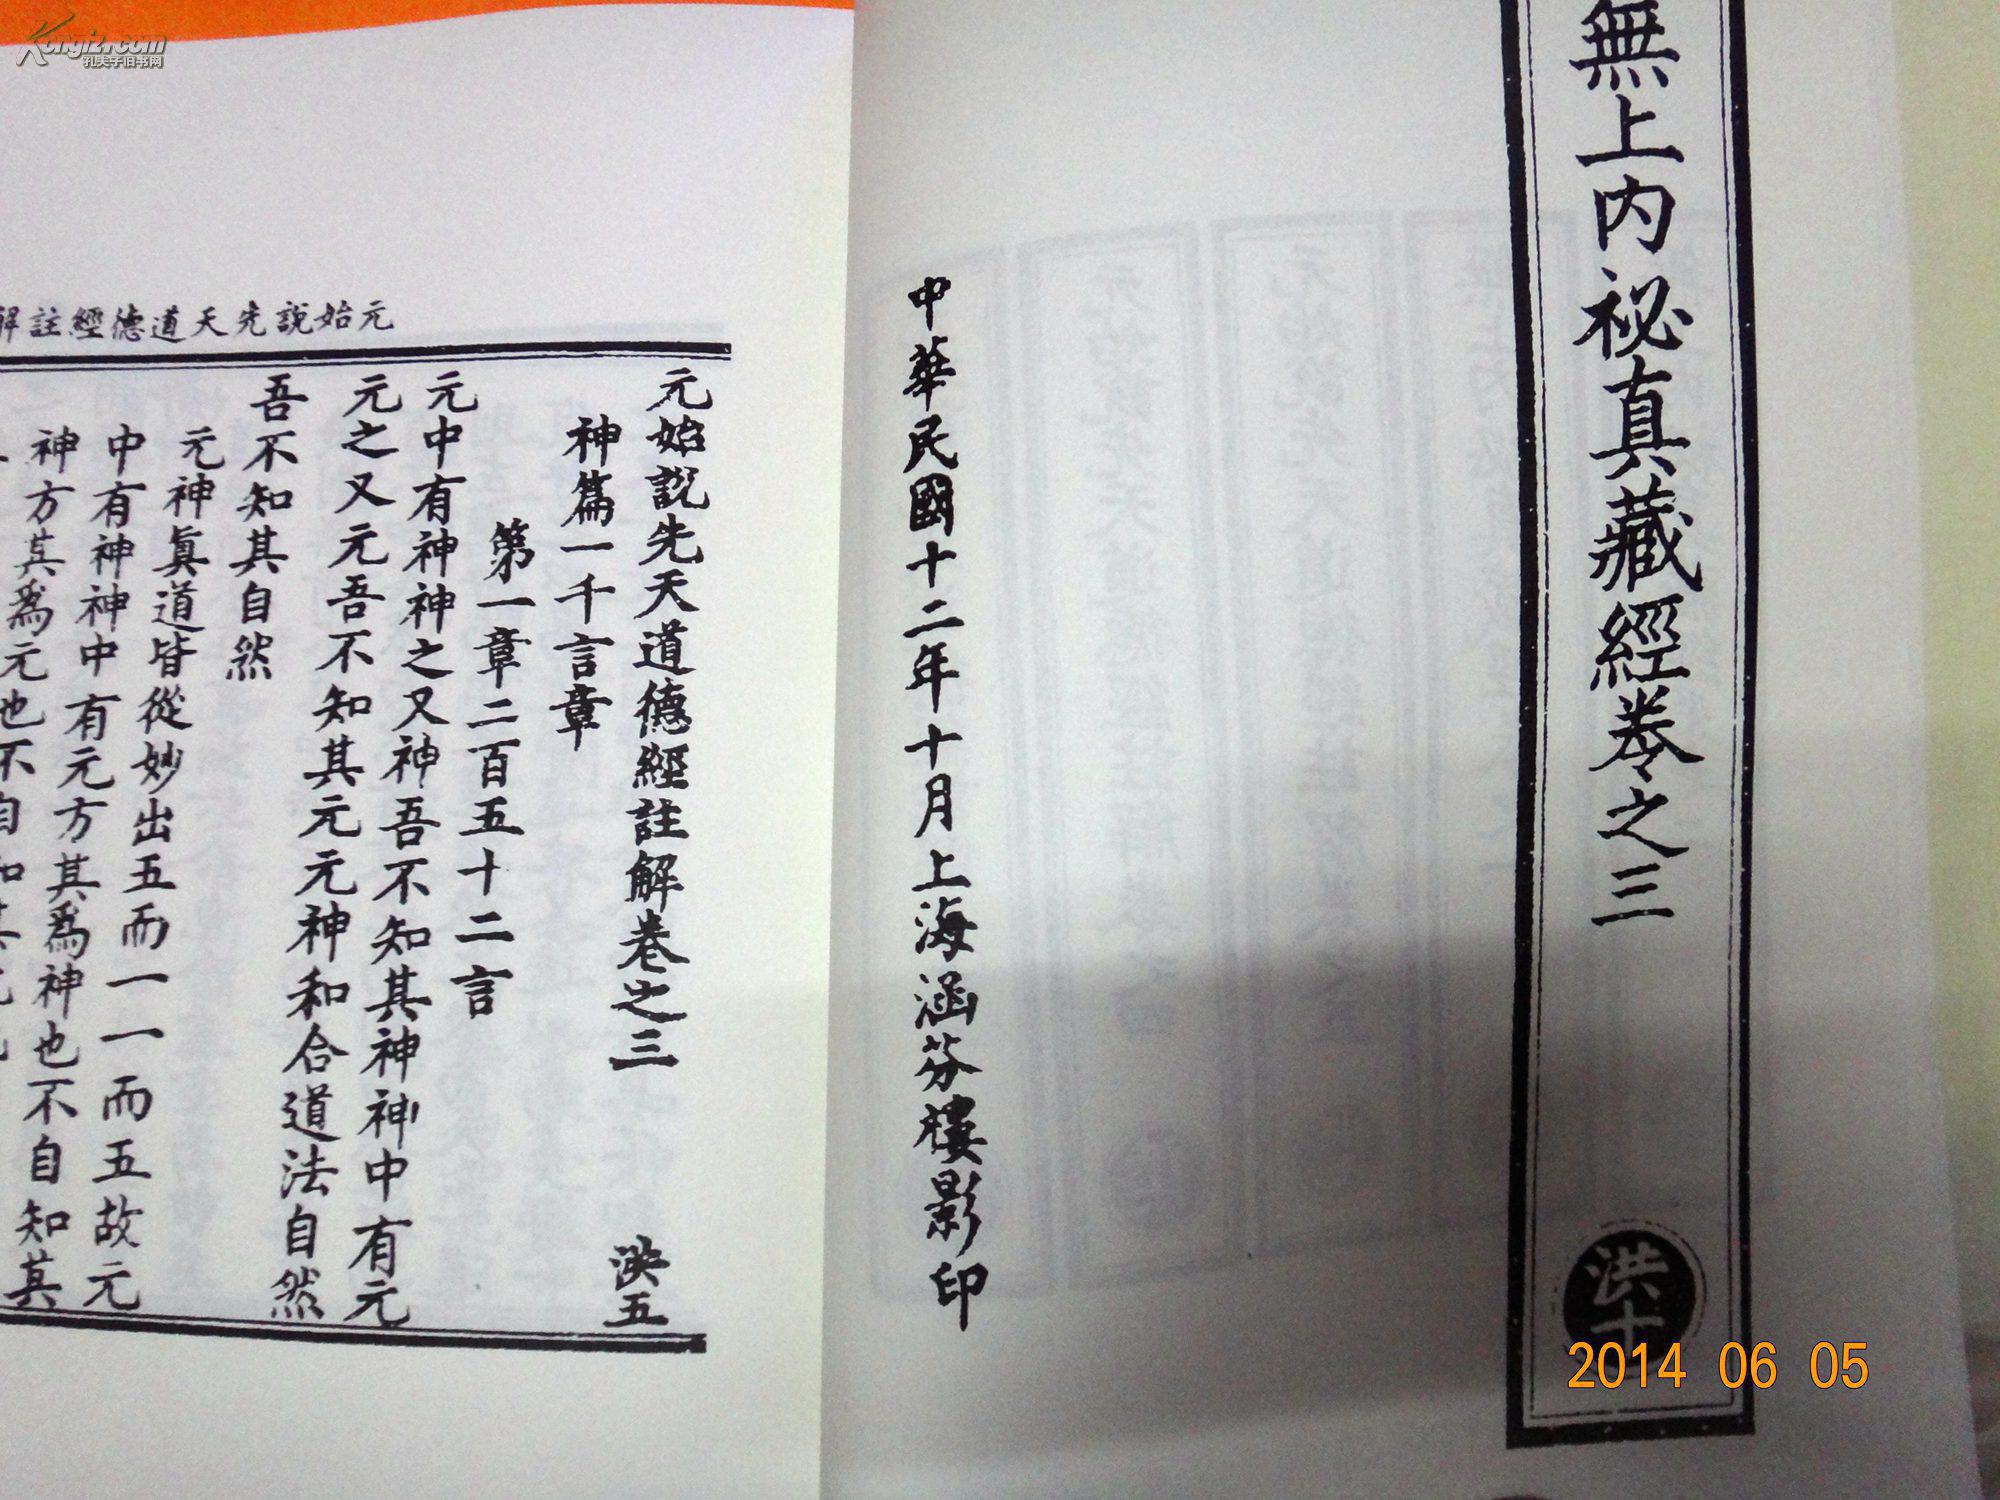 無上内祕真藏經卷之三
洪十
中華民國十二年十月上海涵芬樓影印
元始說先天道德經註解
元始說先天道德經註解卷之三 洪五
神篇一千言章
第一章二百五十二言
元中有神神之又神吾不知其神神中有元
元之又元吾不知其元元神和合道法自然
吾不知其自然
元神眞道皆從妙出五而一一而五故元
中有神神中有元方其爲神也不自知其
神方其爲元也不自知其
Kongfz.com
孔夫子旧书网
2014 06 05